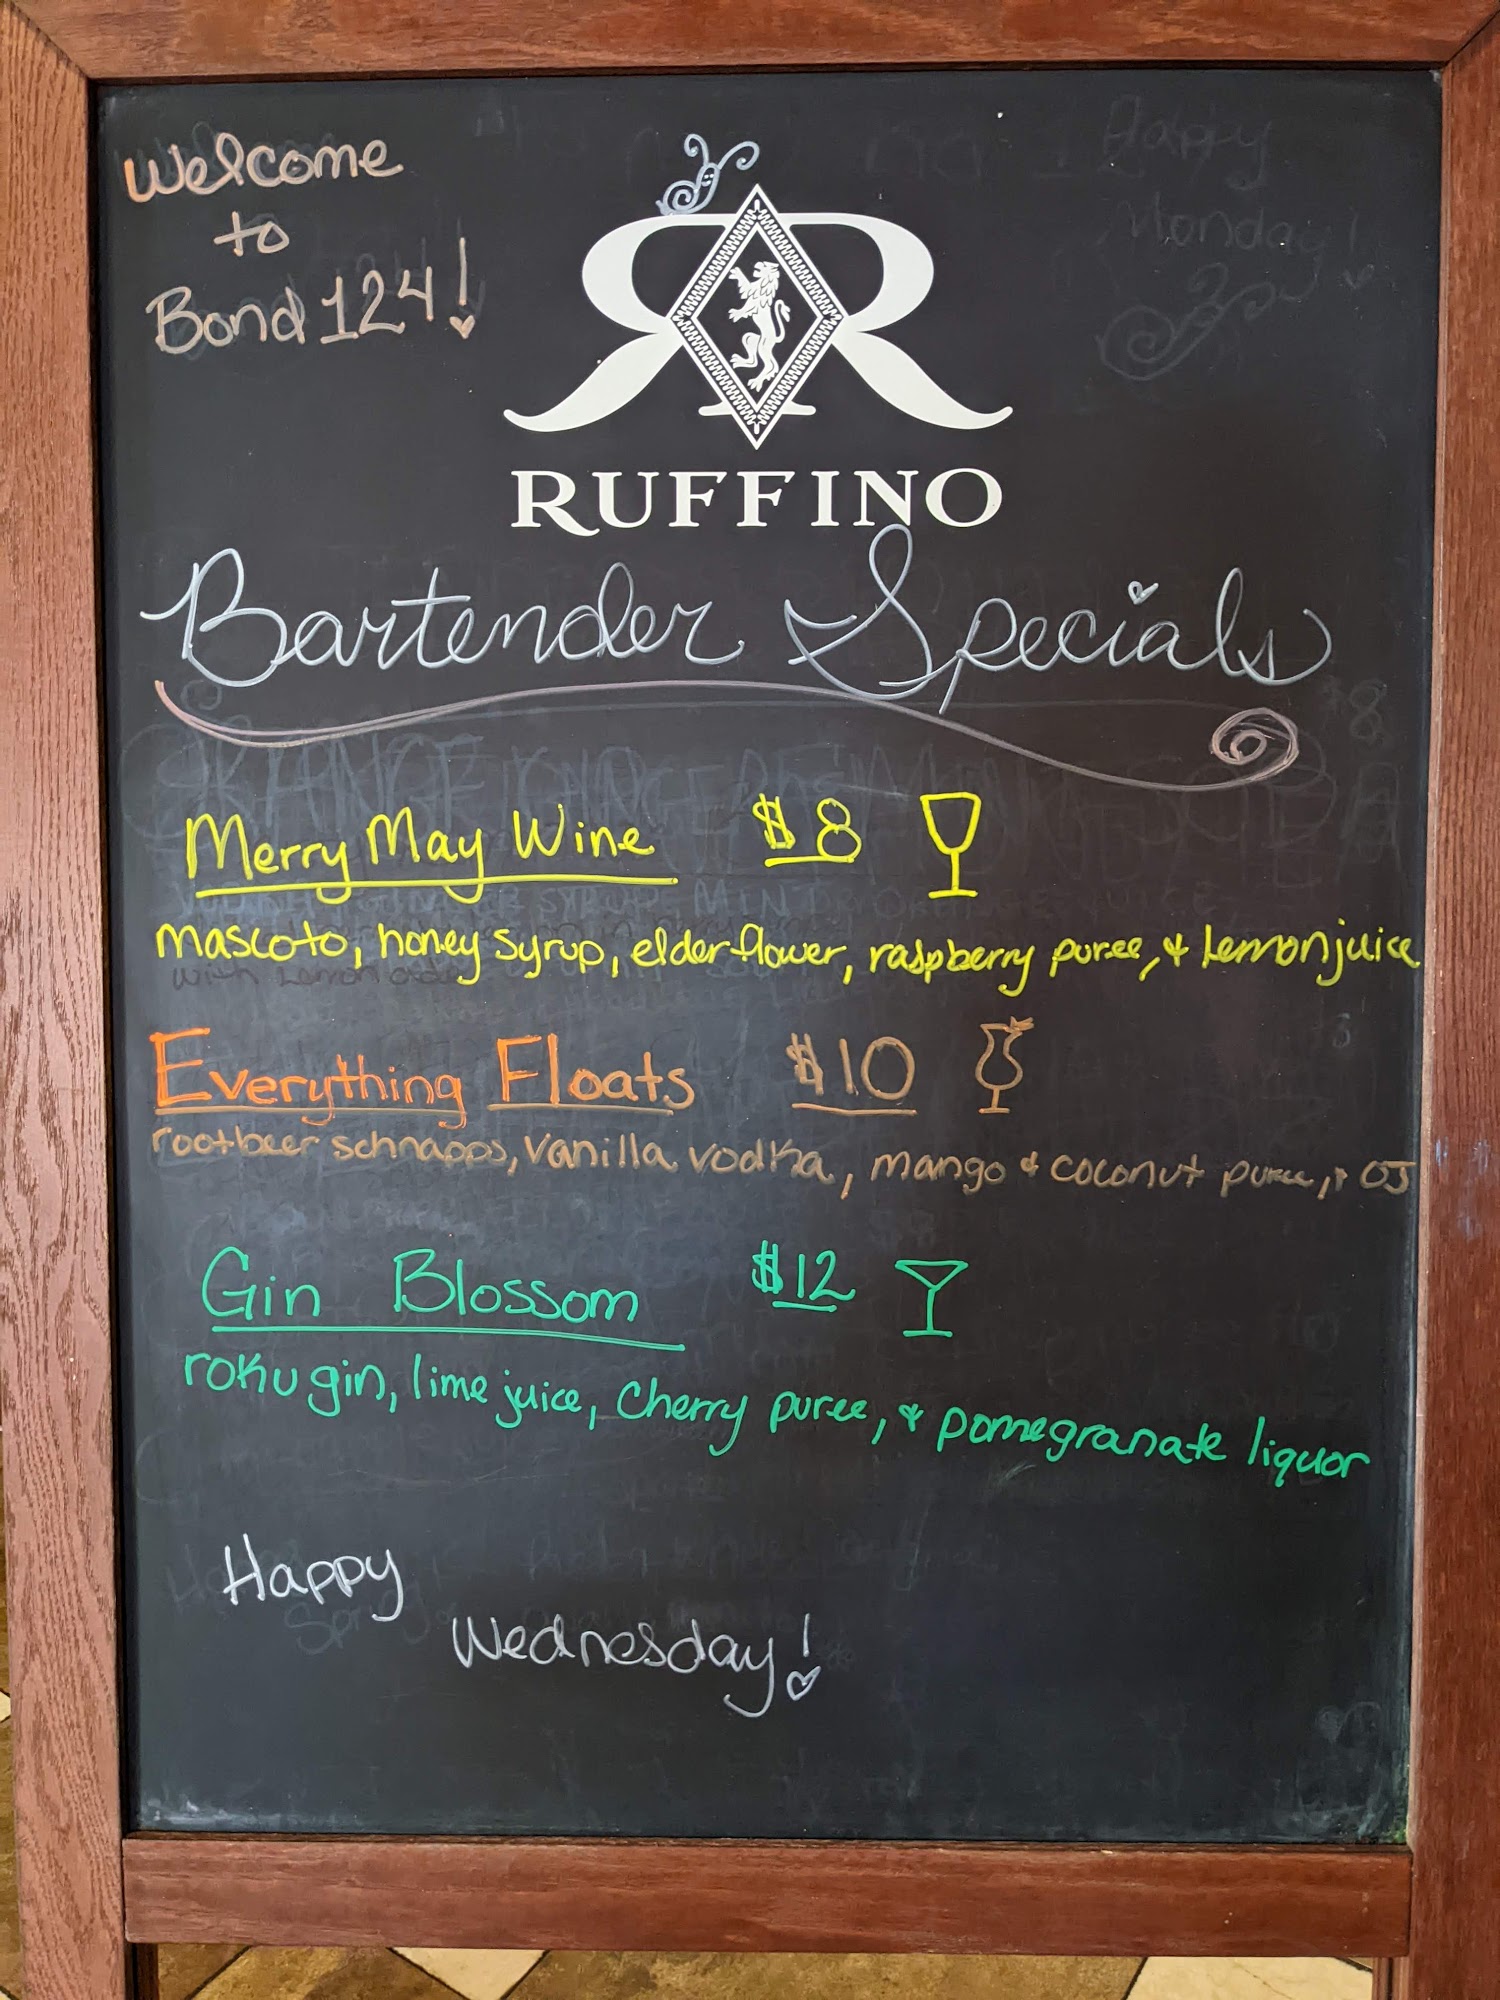 Welcome
to
Bond 124!
RUFFINO
Bartender Specials
Merry May Wine $8
mascoto, honey syrup, elderflower, raspberry puree, & Lemon juice
Everything Floats $10
rootbeer schnapps, vanilla vodka, mango & coconut puree, & OJ
Gin Blossom $12
roku gin, lime juice, cherry puree, & pomegranate liquor
Happy
Wednesday!
Happy
Monday!